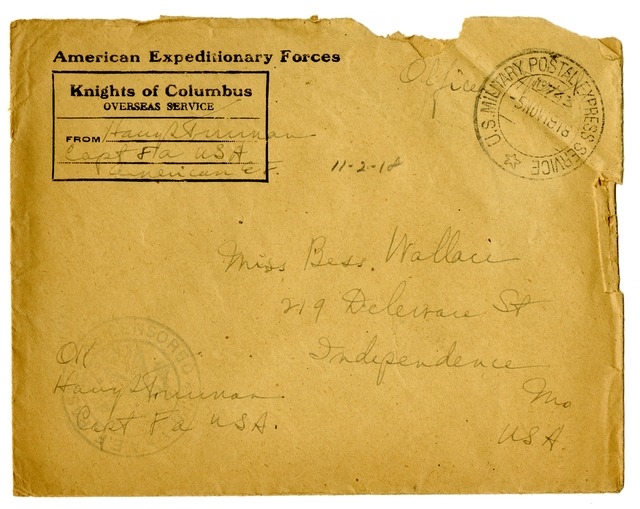 American Expeditionary Forces
Knights of Columbus
OVERSEAS SERVICE
FROM Harry S Truman
Capt Fa USA
American E.F.
Officer
U.S. MILITARY POSTAL EXPRESS SERVICE
No 743
-5 NOV 1918
11-2-18
Miss Bess Wallace
219 Deleware St
Independence
Mo
USA.
CENSORED
OK
Harry S Truman
Capt Fa USA.